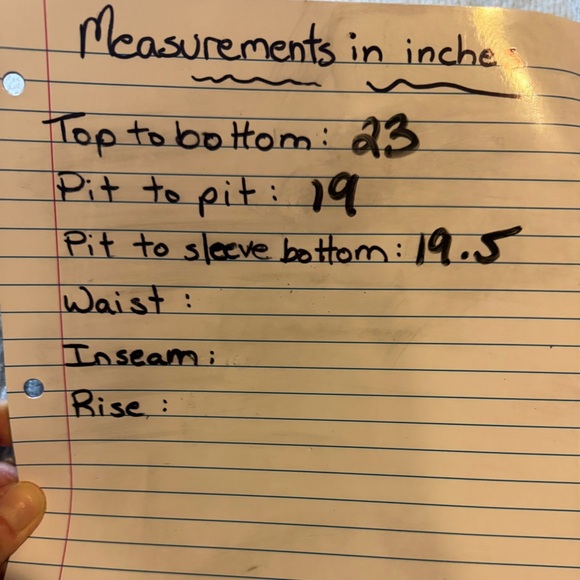 Measurements in inche
Top to bottom: 23
Pit to pit: 19
Pit to sleeve bottom: 19.5
Waist:
Inseam:
Rise: